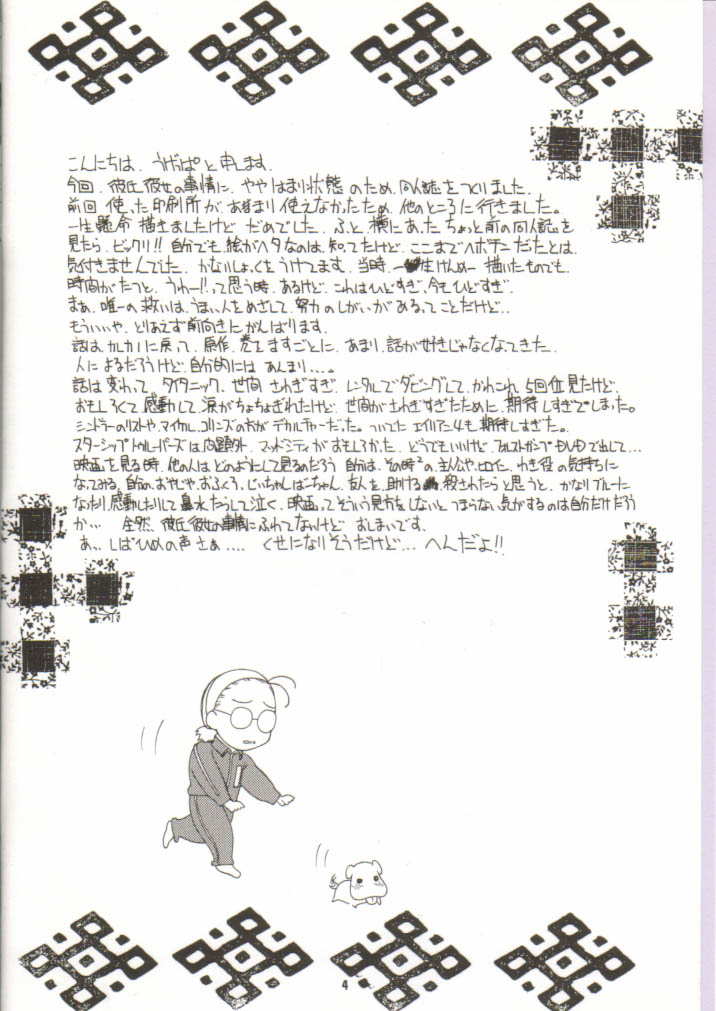 こんにちは、うげっぱと申します。
今回、彼氏彼女の事情に、ややはまり状態のため、同人誌をつくりました。
前回使った印刷所が、あまり使えなかったため、他のところに行きました。
一生懸命描きましたけど だめでした。ふと、横にあった ちょっと前の同人誌を
見たら、ビックリ!! 自分でも絵がヘタなのは、知ってたけど、ここまでヘボデーだったとは、
気付きませんでした。かないしょっくをうけてます。当時、一生けんめー 描いたものでも、
時間がたつと、うわー!!って思う時、あるけど、これはひどすぎ、今もひどすぎ。
まぁ、唯一の救いは、うまい人をめざして、努力のしがいがあるってことだけど…
もういいや、とりあえず前向きにがんばります。
話は、戻って、原作、巻をますごとに、あまり、話が好きじゃなくなてきた。
人によるだろうけど、自分的には あんまり……。
話は変わって、タイタニック、世間 さわぎすぎ、レンタルでダビングして、かれこれ、5回位見たけど、
おもしろくて 感動して、涙がちょちょぎれたけど、世間がさわぎすぎたために、期待しすぎでしまった。
シンドラーのリストや、マイケル、コリンズの方がデカルチャーだった。ついでに エイリアン4も、期待しすぎた。
スターシップトゥルーパーズは、問題外、マッドシティがおもしろかった、どうでもいいけど、フォレストガンプもDVDで出して…
映画を見る時、他の人は どのようにして見るのだろう 自分は、その時²の主人公や、ヒロイン、わき役の気持ちに
なってみる、自分の、おやじや、おふくろ、じいちゃん、ばーちゃん、友人を、助ける、殺されたらと思うと、かなりブルーに
なったり、感動したりして 鼻水たらして泣く、映画ってそういう見方をしないと つまらない気がするのは自分だけだろう
か… 全然、彼氏彼女の事情にふれてないけど おしまいです。
あっ、しばひめの声さぁ…. くせになりそうだけど… へんだよ!!
4